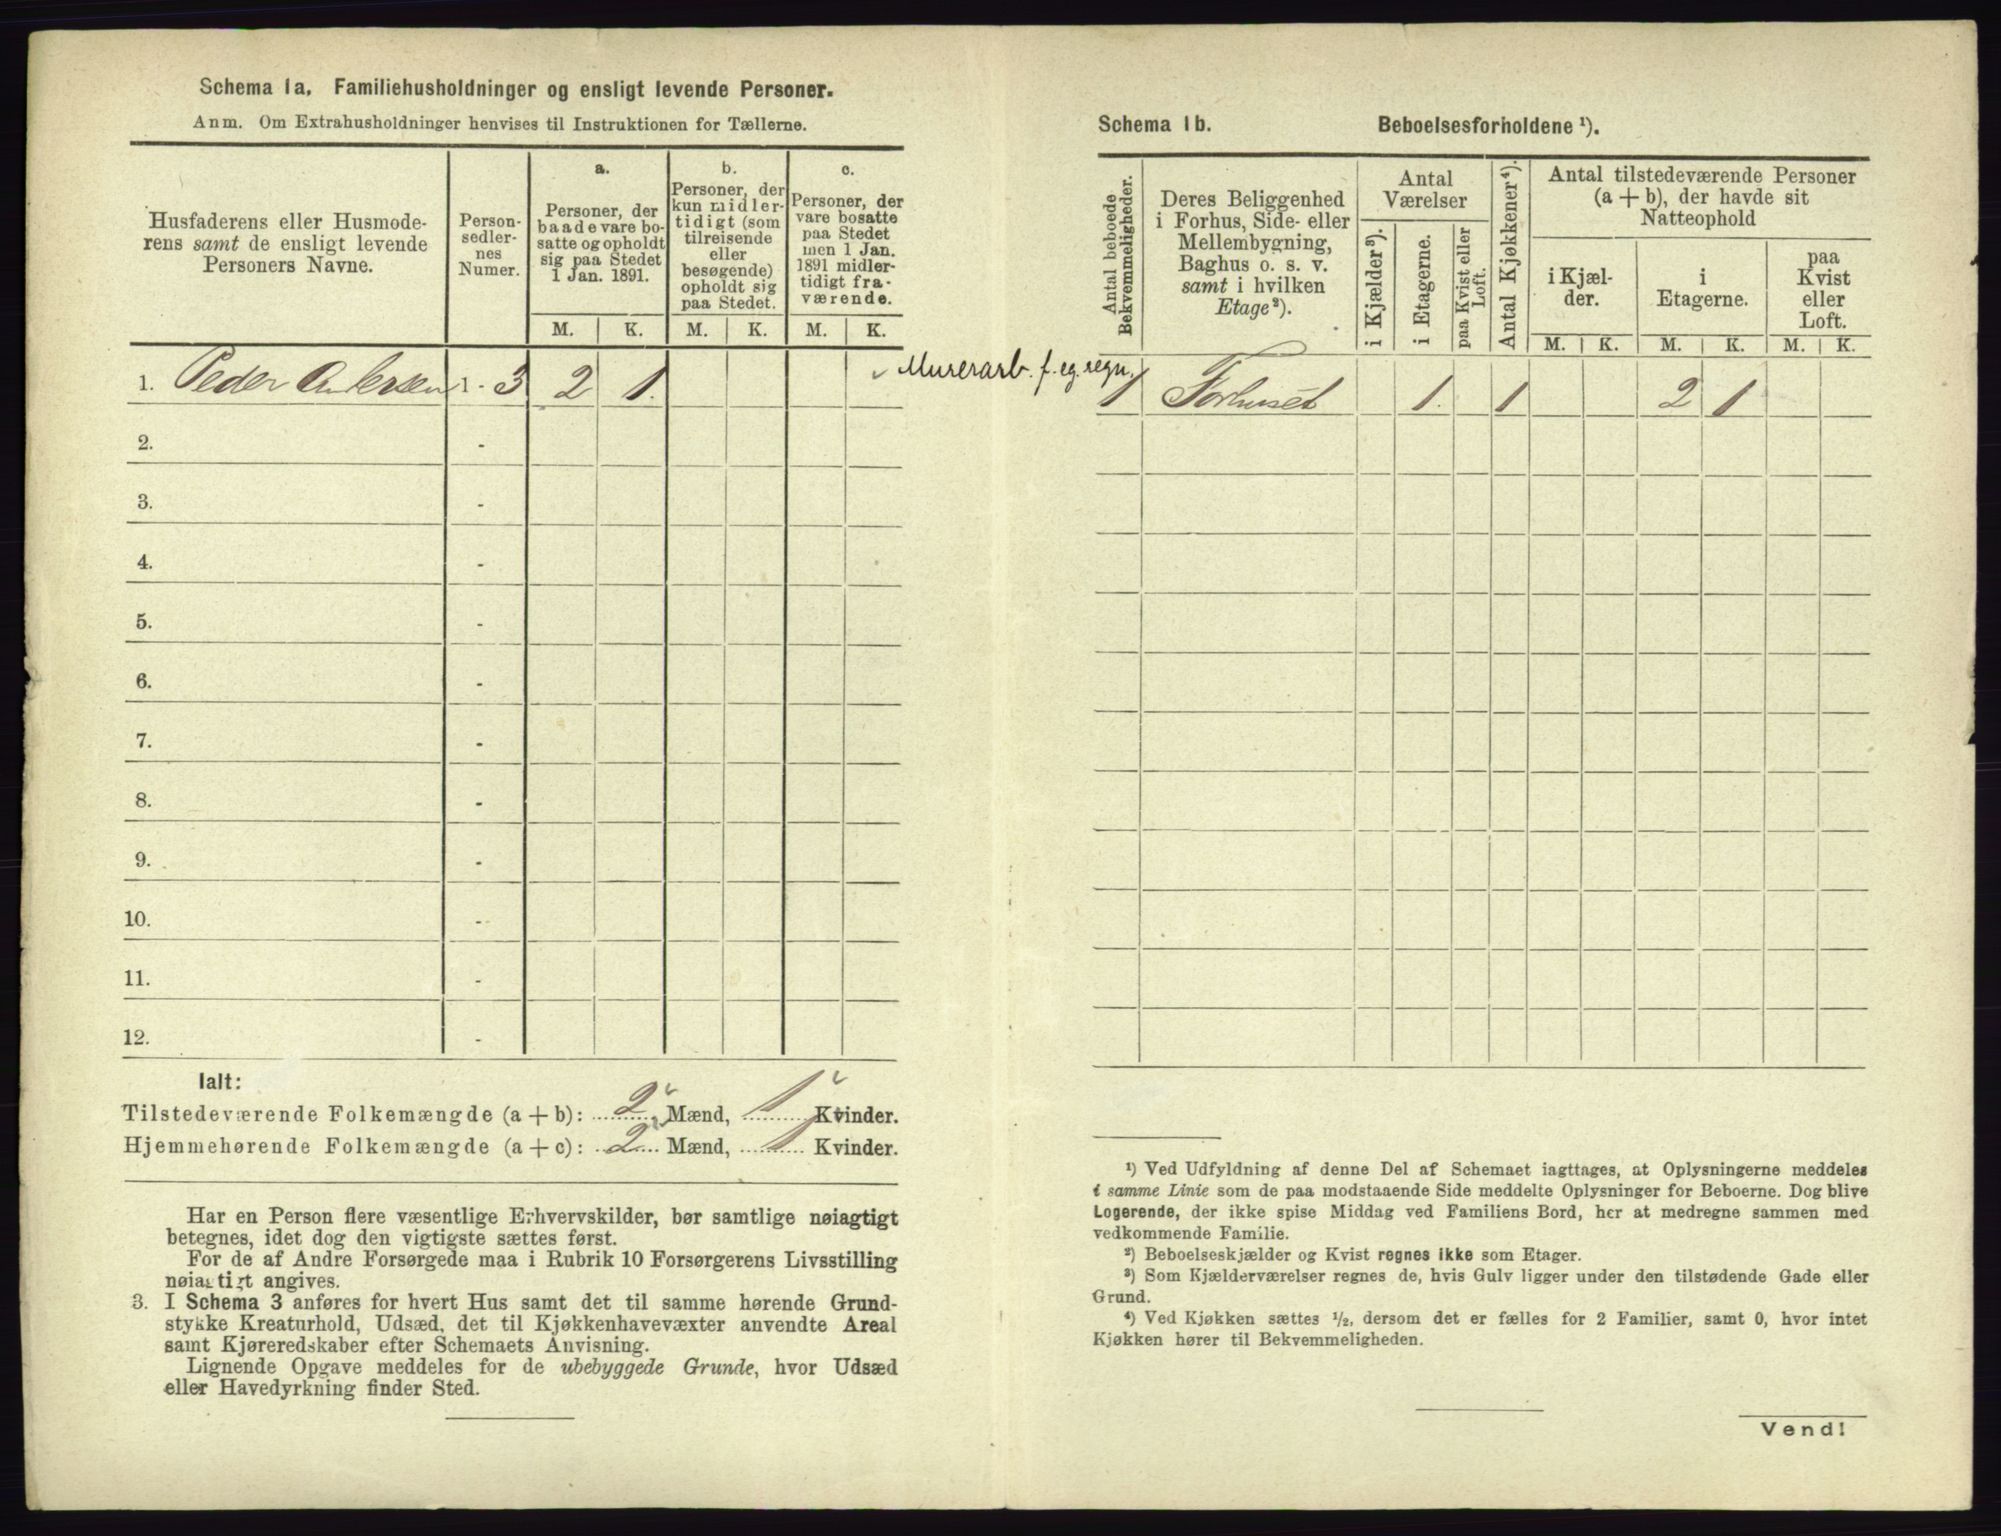 Schema 1a. Familiehusholdninger og ensligt levende Personer.
Anm. Om Extrahusholdninger henvises til Instruktionen for Tællerne.
Husfaderens eller Husmode-
rens samt de ensligt levende
Personers Navne.
Person-
sedler-
nes
Numer.
a.
Personer, der
baade vare bo-
satte og opholdt
sig paa Stedet
1 Jan. 1891.
b.
Personer, der
kun midler-
tidigt (som
tilreisende
eller
besøgende)
opholdt sig
paa Stedet.
c.
Personer, der
vare bosatte
paa Stedet
men 1 Jan.
1891 midler-
tidigt fra-
værende.
M. K. M. K. M. K.
1. Peder Andersen 1 - 3 2 1.
2. -
3. -
4. -
5. -
6. -
7. -
8. -
9. -
10. -
11. -
12. -
Ialt:
Tilstedeværende Folkemængde (a + b): 2 Mænd, 1 Kvinder.
Hjemmehørende Folkemængde (a + c): 2 Mænd, 1 Kvinder.
Har en Person flere væsentlige Erhvervskilder, bør samtlige nøiagtigt
betegnes, idet dog den vigtigste sættes først.
For de af Andre Forsørgede maa i Rubrik 10 Forsørgerens Livsstilling
nøiagtigt angives.
3. I Schema 3 anføres for hvert Hus samt det til samme hørende Grund-
stykke Kreaturhold, Udsæd, det til Kjøkkenhavevæxter anvendte Areal
samt Kjøreredskaber efter Schemaets Anvisning.
Lignende Opgave meddeles for de ubebyggede Grunde, hvor Udsæd
eller Havedyrkning finder Sted.
Schema 1b. Beboelsesforholdene ¹).
Antal beboede
Bekvemmeligheder.
Deres Beliggenhed
i Forhus, Side- eller
Mellembygning,
Baghus o. s. v.
samt i hvilken
Etage²).
Antal
Værelser
i Kjælder³).
i Etagerne.
paa Kvist eller
Loft.
Antal Kjøkkener⁴).
Antal tilstedeværende Personer
(a + b), der havde sit
Natteophold
i Kjæl-
der.
i
Etagerne.
paa
Kvist
eller
Loft.
M. K. M. K. M. K.
Murerarb. f. eg. regn.
1 Forhuset 1. 1 2 1
¹) Ved Udfyldning af denne Del af Schemaet iagttages, at Oplysningerne meddeles
i samme Linie som de paa modstaaende Side meddelte Oplysninger for Beboerne. Dog blive
Logerende, der ikke spise Middag ved Familiens Bord, her at medregne sammen med
vedkommende Familie.
²) Beboelseskjælder og Kvist regnes ikke som Etager.
³) Som Kjælderværelser regnes de, hvis Gulv ligger under den tilstødende Gade eller
Grund.
⁴) Ved Kjøkken sættes ½, dersom det er fælles for 2 Familier, samt 0, hvor intet
Kjøkken hører til Bekvemmeligheden.
Vend!